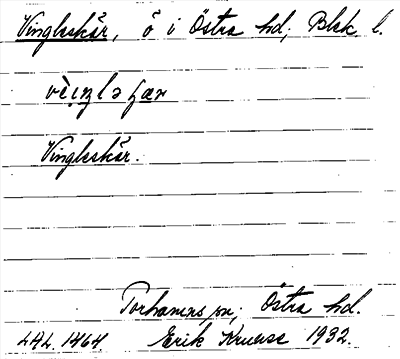 Vingleskär, ö i Östra hd, Blek. l.
Vingleskär.
Torhamns sn, Östra hd.
LAL. 1464 Erik Kruuse 1932.